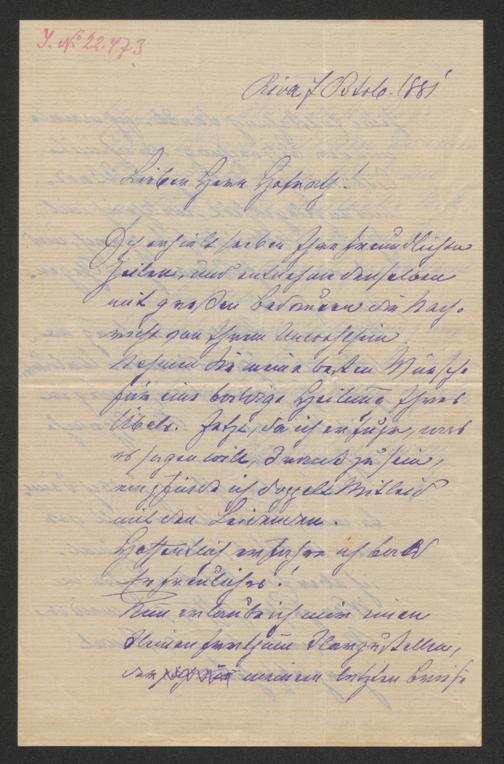 J. No 22.473
Riva 7 Octob. 1881
Lieber Herr Hofrath!
Ich erhielt soeben Ihre freundlichen
Zeilen, und entnehme denselben
mit großem Bedauern die Nach-
richt von Ihrem Unwohlsein
Nehmen Sie meine besten Wünsche
für eine baldige Heilung Ihres
Übels. Jetzt, da ich erfuhr, was
es sagen will, krank zu sein,
empfinde ich doppelt Mitleid
mit den Leidenden.
Hoffentlich erfahre ich bald
Erfreuliches!
Nun erlaube ich mir einen
kleinen Irrthum klarzustellen,
der meinem letzten Briefe